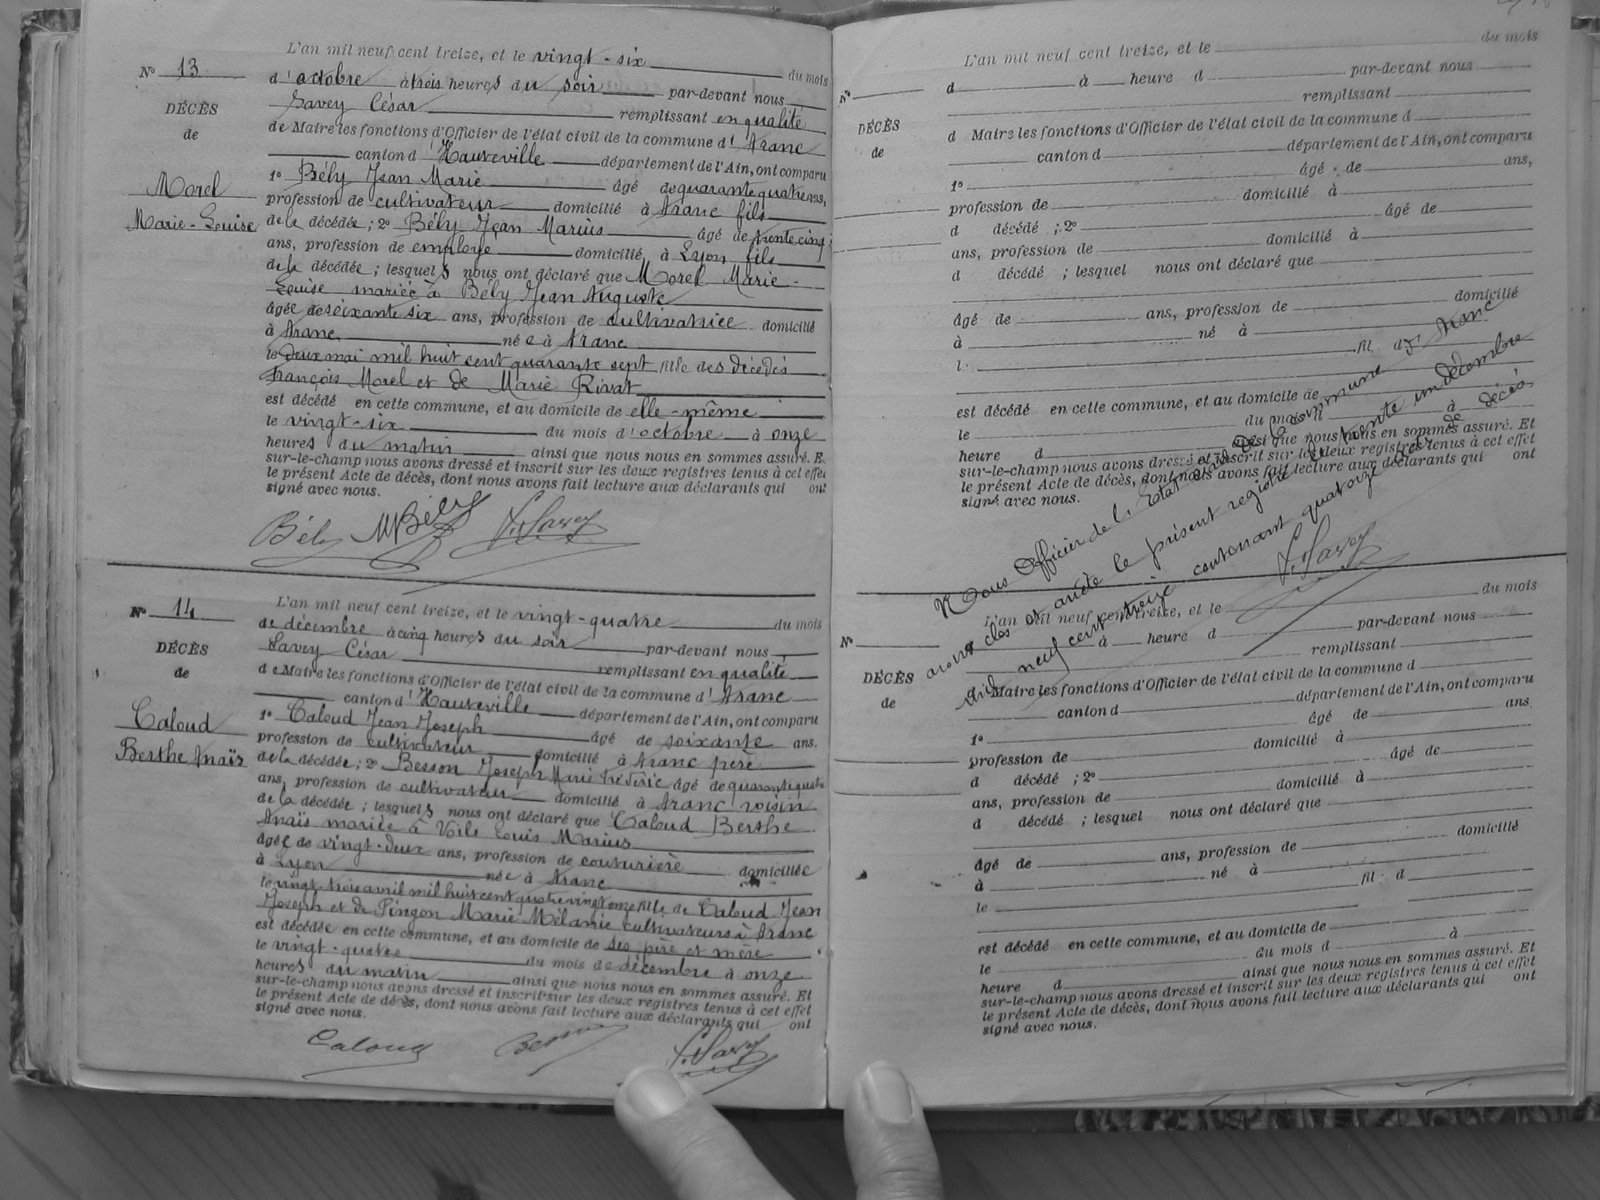 L'an mil neuf cent treize, et le vingt-six du mois
N° 13
d'octobre à trois heures du soir par-devant nous
Savey César remplissant en qualité
DÉCÈS
de
de Maire les fonctions d'Officier de l'état civil de la commune d'Aranc
canton d'Hauteville département de l'Ain, ont comparu
1° Bély Jean Marie âgé de quarante quatre ans,
Morel
Marie-Louise
profession de cultivateur domicilié à Aranc fils
de la décédée; 2° Bély Jean Marius âgé de trente cinq
ans, profession de employé domicilié à Lyon fils
de la décédée; lesquels nous ont déclaré que Morel Marie-
Louise mariée à Bély Jean Auguste
âgée de soixante six ans, profession de cultivatrice domicilié
à Aranc née à Aranc
le deux mai mil huit cent quarante sept fille des décédés
François Morel et de Marie Rivat
est décédé en cette commune, et au domicile de elle-même
le vingt-six du mois d'octobre à onze
heures du matin ainsi que nous nous en sommes assuré. E
sur-le-champ nous avons dressé et inscrit sur les deux registres tenus à cet effet
le présent Acte de décès, dont nous avons fait lecture aux déclarants qui ont
signé avec nous.
Bély MBély Savey
L'an mil neuf cent treize, et le vingt-quatre du mois
N° 14
de décembre à cinq heures du soir par-devant nous
Savey César remplissant en qualité
DÉCÈS
de
de Maire les fonctions d'Officier de l'état civil de la commune d'Aranc
canton d'Hauteville département de l'Ain, ont comparu
1° Caloud Jean Joseph âgé de soixante ans.
Caloud
Berthe Anaïs
profession de cultivateur domicilié à Aranc père
de la décédée; 2° Besson Joseph Marie Frédéric âgé de quarante quatre
ans, profession de cultivateur domicilié à Aranc voisin
de la décédée; lesquels nous ont déclaré que Caloud Berthe
Anaïs mariée à Louis Marius
âgée de vingt-deux ans, profession de couturière domiciliée
à Lyon née à Aranc
le vingt-trois avril mil huit cent quatre vingt onze fille de Caloud Jean
Joseph et de Pingon Marie Mélanie cultivateurs à Aranc
est décédée en cette commune, et au domicile de ses père et mère
le vingt-quatre du mois de décembre à onze
heures du matin ainsi que nous nous en sommes assuré. Et
sur-le-champ nous avons dressé et inscrit sur les deux registres tenus à cet effet
le présent Acte de décès, dont nous avons fait lecture aux déclarants qui ont
signé avec nous.
Caloud Besson Savey
L'an mil neuf cent treize, et le du mois
N°
d à heure d par-devant nous
remplissant
DÉCÈS
de
d Maire les fonctions d'Officier de l'état civil de la commune d
canton d département de l'Ain, ont comparu
1° âgé de ans,
profession de domicilié à
d décédé; 2° âgé de
ans, profession de domicilié à
d décédé; lesquel nous ont déclaré que
âgé de ans, profession de domicilié
à né à
l fil d
est décédé en cette commune, et au domicile de
le du mois d à
heure d ainsi que nous nous en sommes assuré. Et
sur-le-champ nous avons dressé et inscrit sur les deux registres tenus à cet effet
le présent Acte de décès, dont nous avons fait lecture aux déclarants qui ont
signé avec nous.
Nous Officier de l'Etat civil de la commune d'Aranc
avons clos et arrêté le présent registre le trente un décembre
mil neuf cent treize contenant quatorze actes de décès
Savey
L'an mil neuf cent treize, et le du mois
N°
d à heure d par-devant nous
remplissant
DÉCÈS
de
d Maire les fonctions d'Officier de l'état civil de la commune d
canton d département de l'Ain, ont comparu
1° âgé de ans
profession de domicilié à
d décédé; 2° âgé de
ans, profession de domicilié à
d décédé; lesquel nous ont déclaré que
âgé de ans, profession de domicilié
à né à
le fil d
est décédé en cette commune, et au domicile de
le du mois d à
heure d ainsi que nous nous en sommes assuré. Et
sur-le-champ nous avons dressé et inscrit sur les deux registres tenus à cet effet
le présent Acte de décès, dont nous avons fait lecture aux déclarants qui ont
signé avec nous.